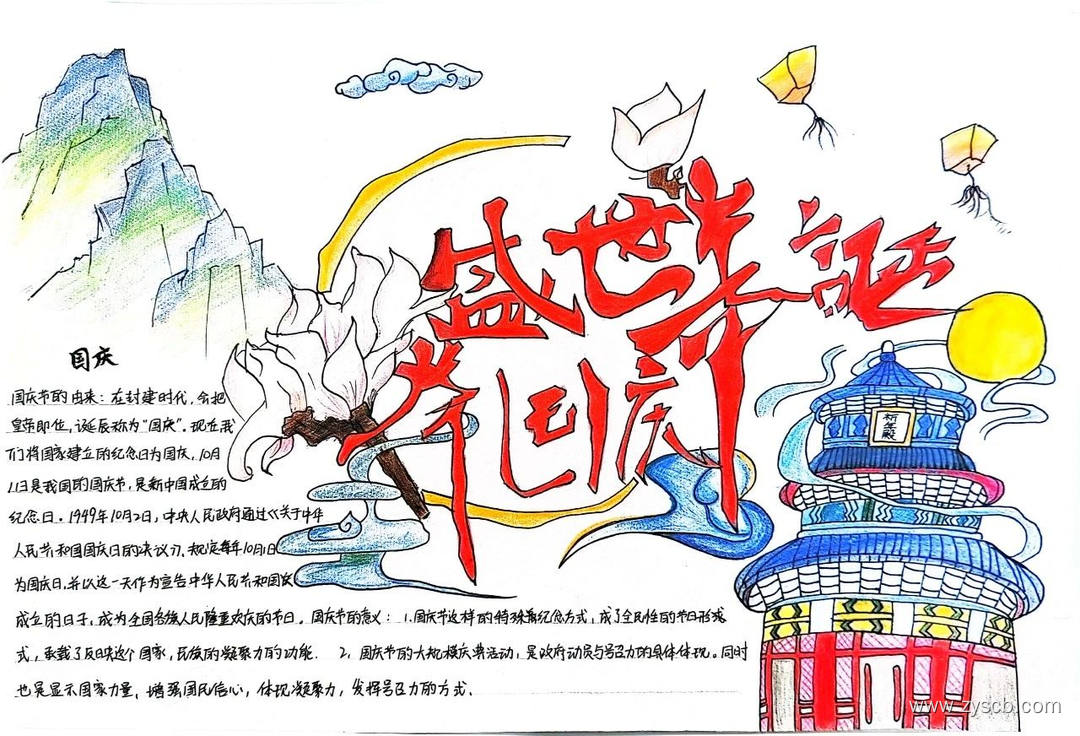 盛世华诞
举国同庆
祈年殿
国庆
国庆节的由来：在封建时代，会把
皇帝即位、诞辰称为"国庆"。现在我
们将国家建立的纪念日为国庆，10月
1日是我国的国庆节，是新中国成立的
纪念日。1949年10月2日，中央人民政府通过《关于中华
人民共和国国庆日的决议》，规定每年10月1日
为国庆日，并以这一天作为宣告中华人民共和国
成立的日子，成为全国各族人民隆重欢庆的节日。国庆节的意义：1.国庆节这样的特殊纪念方式，成了全民性的节日形
式，承载了反映这个国家，民族的凝聚力的功能. 2，国庆节的大规模庆典活动，是政府动员与号召力的具体体现。同时
也是显示国家力量、增强国民信心，体现凝聚力，发挥号召力的方式.
www.zyscb.com